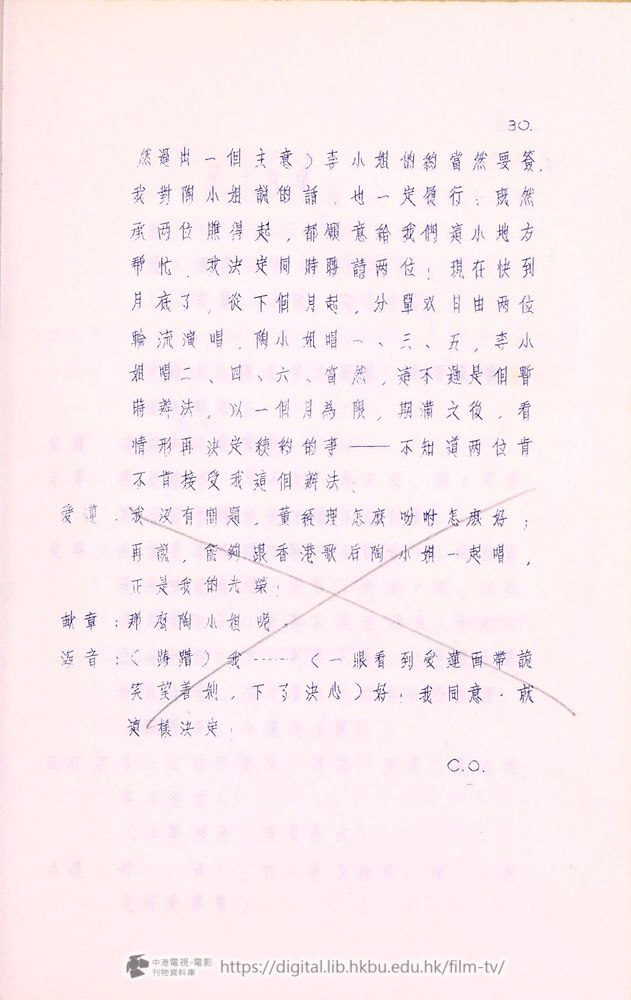 30.
然逼出一個主意）李小姐的約當然要簽，
我對陶小姐說的話，也一定履行；既然
承兩位瞧得起，都願意給我們這小地方
幫忙，我決定同時聘請兩位！現在快到
月底了，從下個月起，分單双日由兩位
輪流演唱，陶小姐唱一、三、五，李小
姐唱二、四、六。當然，這不過是個暫
時辦法，以一個月為限，期滿之後，看
情形再決定續約的事——不知道兩位肯
不肯接受我這個辦法。
愛蓮：我沒有問題，董經理怎麼吩咐怎麼好；
再說，能夠跟香港歌后陶小姐一起唱，
正是我的光榮！
獻章：那麼陶小姐呢。
海音：（躊躇）我……（一眼看到愛蓮面帶詭
笑望着她，下了決心）好！我同意，就
這樣決定！
C.O.
中港電視-電影
刊物資料庫
https://digital.lib.hkbu.edu.hk/film-tv/